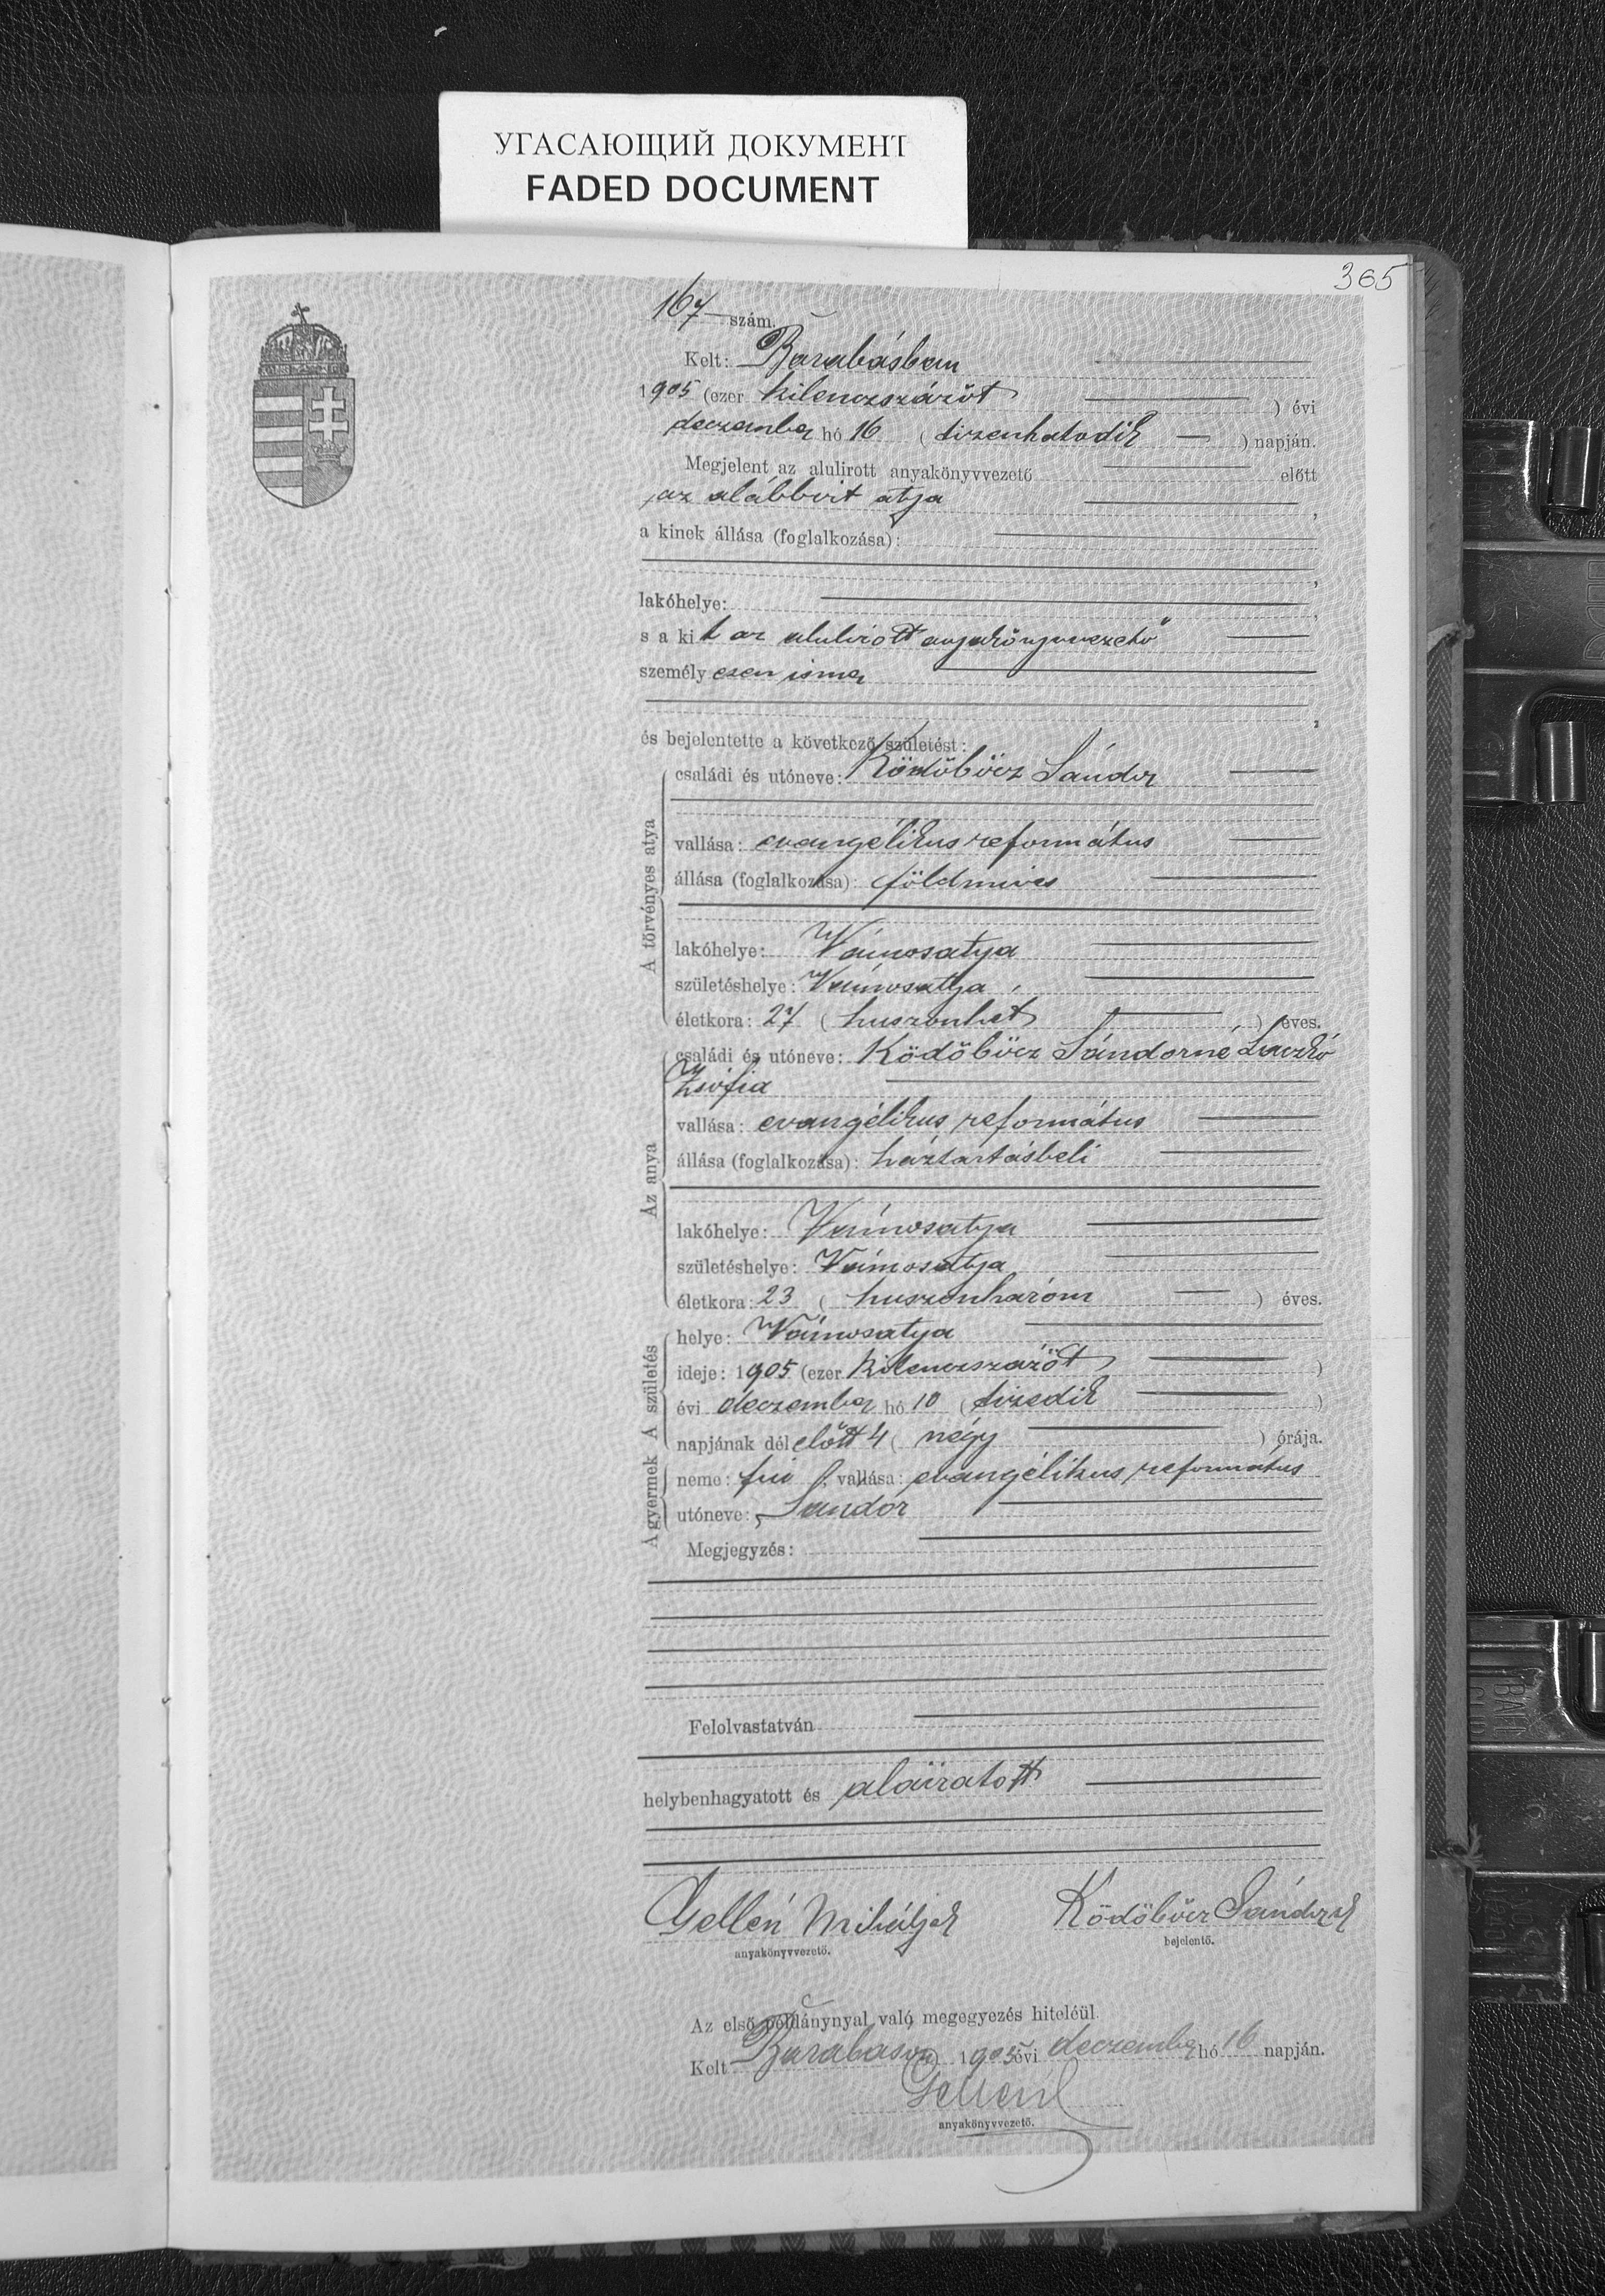 УГАСАЮЩИЙ ДОКУМЕНТ
FADED DOCUMENT
365
167 szám.
Kelt: Barabásban
1905 (ezer kilenczszázöt ) évi
deczember hó 16 ( tizenhatodik ) napján.
Megjelent az alulirott anyakönyvvezető előtt
az alábbirt atya ,
a kinek állása (foglalkozása):
,
lakóhelye: ,
s a kit az alulirott anyakönyvvezető
személyesen ismer
,
és bejelentette a következő születést:
A törvényes atya
családi és utóneve: Ködöböcz Sándor
vallása: evangélikus református
állása (foglalkozása): földmives
lakóhelye: Vámosatya
születéshelye: Vámosatya
életkora: 27 ( huszonhet ) éves.
Az anya
családi és utóneve: Ködöböcz Sándorné Laczkó
Zsófia
vallása: evangélikus református
állása (foglalkozása): háztartásbeli
lakóhelye: Vámosatya
születéshelye: Vámosatya
életkora: 23 ( huszonhárom ) éves.
A születés
helye: Vámosatya
ideje: 1905 (ezer kilenczszázöt )
évi deczember hó 10 ( tizedik )
napjának délelőtt 4 ( négy ) órája.
A gyermek
neme: fiú vallása: evangélikus református
utóneve: Sándor
Megjegyzés:
Felolvastatván
helybenhagyatott és aláiratott
Gellén Mihály Ködöböcz Sándor
anyakönyvvezető. bejelentő.
Az első példánynyal való megegyezés hiteléül.
Kelt Barabáson 1905 évi deczember hó 16 napján.
Gellén
anyakönyvvezető.